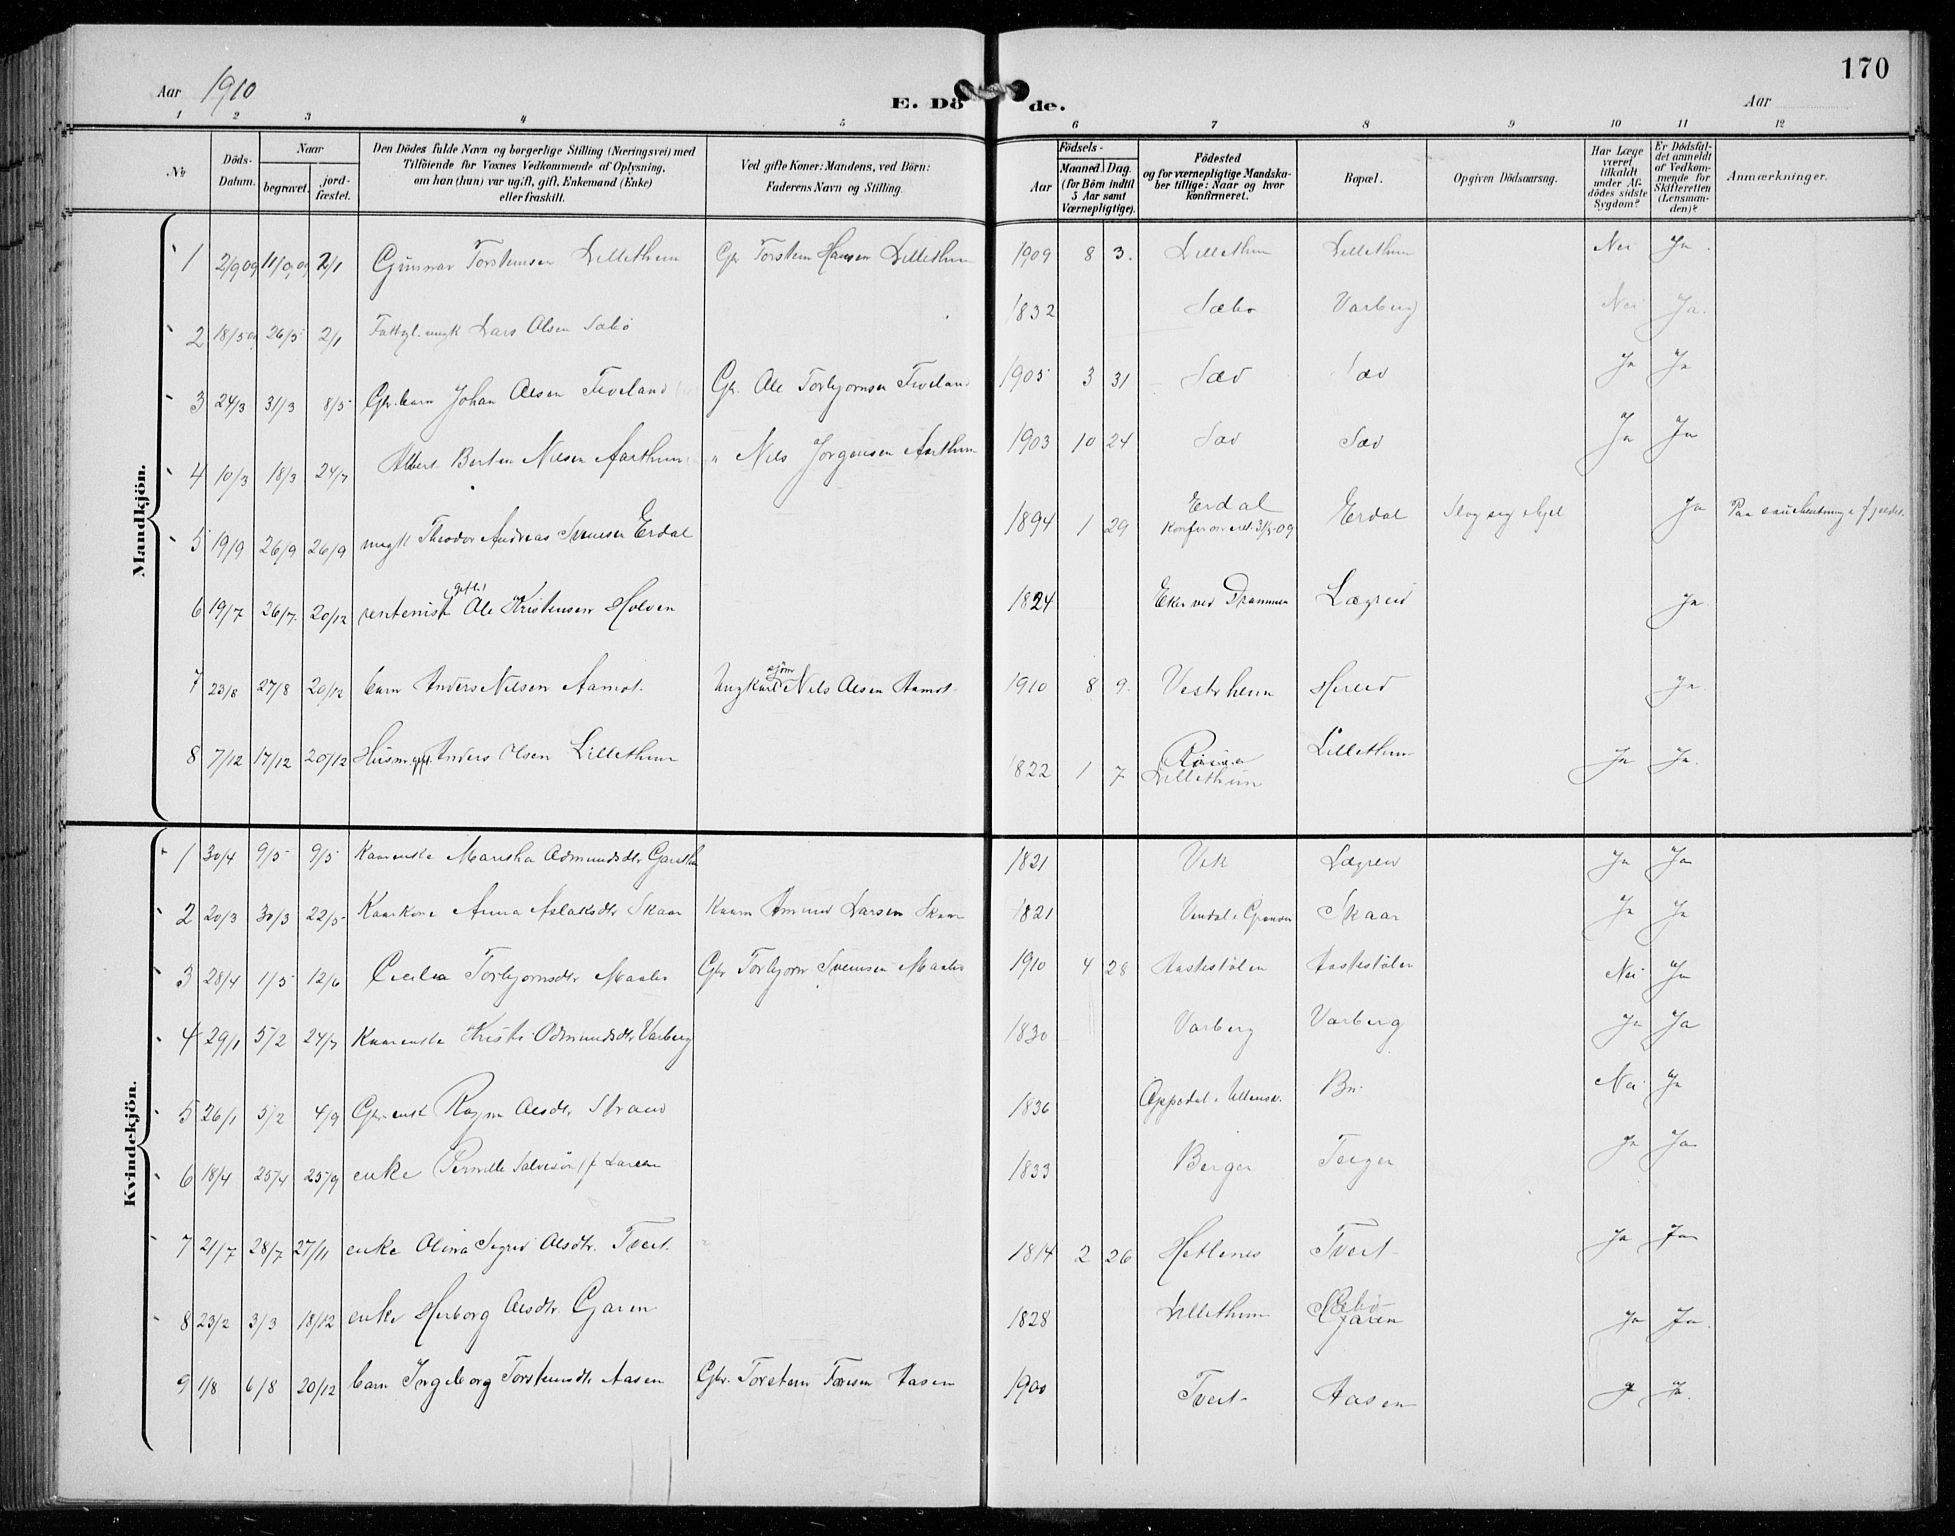 170
Aar 1910
E. Dö de.
Aar
1 2 3 4 5 6 7 8 9 10 11 12
No
Döds-Datum.
Naar
begravet. jord-fæstet.
Den Dödes fulde Navn og borgerlige Stilling (Næringsvei) med
Tilföiende for Voxnes Vedkommende af Oplysning,
om han (hun) var ugift, gift, Enkemand (Enke)
eller fraskilt.
Ved gifte Koner: Mandens, ved Börn:
Faderens Navn og Stilling.
Födsels-
Aar
Maaned. Dag.
(for Börn indtil
5 Aar samt
Værnepligtige).
Födested
og for værnepligtige Mandska-
ber tillige: Naar og hvor
konfirmeret.
Bopæl.
Opgiven Dödsaarsag.
Har Læge
været
tilkaldt
under Af-
dödes sidste
Sygdom?
Er Dödsfal-
det anmeldt
af Vedkom-
mende for
Skifteretten
(Lensman-
den)?
Anmærkninger.
Mandkjön.
1 2/9 09 11/9 09 2/1 Gunnar Torsteinsen Lillethun Gbr Torstein Hansen Lillethun 1909 8 3. Lillethun Lillethun Nei Ja.
2 18/5 09 26/5 2/1 Lars Olsen Sæbö 1832 Sæbo Varberg Nei Ja.
3 24/3 31/3 8/5 Gbr. barn Johan Olsen Tveland Gbr. Ole Torbjornsen Tveland 1905 3 31 Sæd Sæd Ja Ja
4 10/3 18/3 24/7 Nilsen Aarthun " Nils Jørgensen Aarthun 1903 10 24 Sæd Sæd Ja Ja
5 19/9 26/9 26/9 ungk Theodor Andreas Svensen Erdal 1894 1 29 Erdal Erdal Slog sig ihjel Ja
6 19/7 26/7. 20/12 rentenist (gift) Ole Kristensen Holven 1824 Eker ved Drammen Lægreid Ja.
7 23/8 27/8 20/12 barn Anders Nilsen Aamot. Ungkarl sjöm Nils Olsen Aamot. 1910 8 9. Vestrheim Hereid Ja.
8 7/12 17/12 20/12 Husm. gift. Anders Lillethun 1822 1 7 Lillethun Lillethun Ja Ja.
Kvindekjön.
1 30/4 9/5 9/5 Kaarenke Maritha Odmundsdtr 1821 Vik Lægreid Ja Ja
2 20/3 30/3 22/5 Kaarkone Anna Aslaksdtr Skaar Kaarm Amund Larsen Skaar 1821 Skaar Ja Ja
3 28/4 1/5 12/6 Cecilia Torbjornsdtr Maabø Gbr Torbjorn Svensen Maabø 1910 4 28 Hastestölen Hastestölen Nei Ja
4 29/1 5/2 24/7 Kaarenke Kristi Odmundsdtr Varberg 1830 Varberg Varberg Ja Ja
5 26/1 5/2 4/9 Gbr.enke Olsdtr Strand 1836 Oppedal i Ullensv. Nei Ja
6 18/4 25/4 25/9 enke Pernille f Larsen 1833 Bergen Ja Ja
7 21/7 28/7 27/11 enke Olina Sigrid Olsdtr. Tveit. 1814 2 26 Hetlenes Tveit Ja Ja
8 23/2 3/3 18/12 enke Herborg Olsdtr. Garen 1828 Lillethun Sæbö Garen Ja Ja.
9 1/8 6/8 20/12 barn Ingeborg Torsteinsdtr Aasen Gbr. Torstein Aasen 1900 Tveit Aasen Ja.